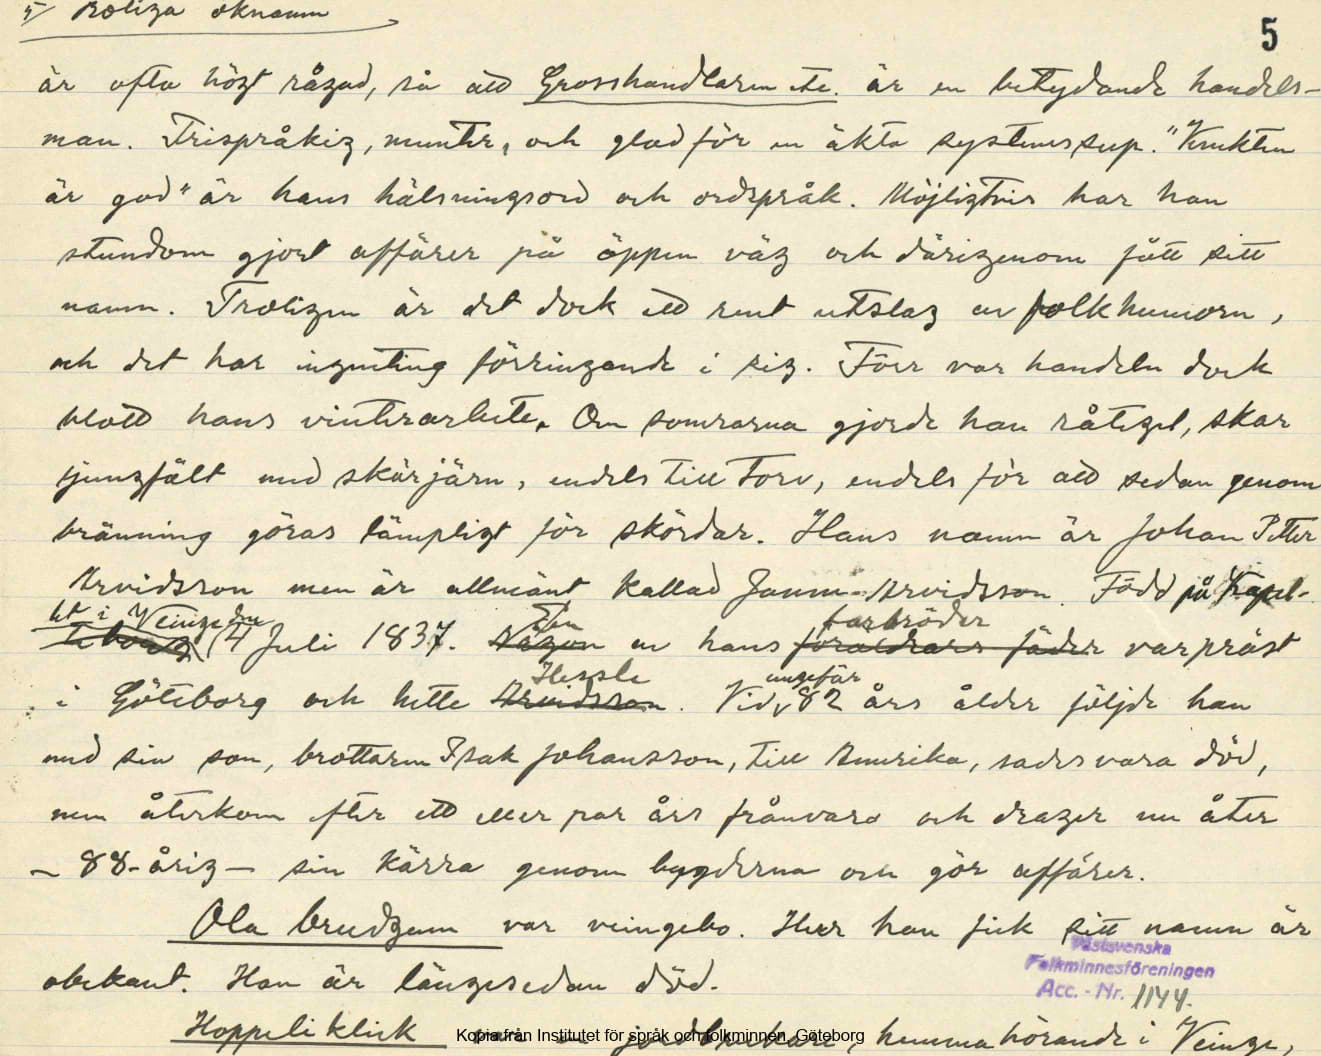 5/ Roliga öknamn
5
är ofta högt rågad, så att Grosshandlaren etc. är en betydande handels-
man. Trispråkig, munter, och glad för en äkta systemssup. "Vinkten
är god" är hans hälsningsord och ordspråk. Möjligtvis har han
stundom gjort affärer på öppen väg och därigenom fått sitt
namn. Troligen är det dock ett rent utslag av folkhumorn,
och det har ingenting förringande i sig. Förr var handeln dock
blott hans vinterarbete. Om somrarna gjorde han råtegel, skar
ljungfält med skärjärn, endels till Torv, endels för att sedan genom
bränning göras lämpligt för skördar. Hans namn är Johan Petter
Arvidsson men är allmänt kallad Janne-Arvidsson. Född på Kapel-
let i Veinge den
14 Juli 1837. Någon av hans föräldrars fäder var präst
En farbröder
i Göteborg och hette Arvidsson. Vid 82 års ålder följde han
Hessle ungefär
med sin son, brottaren Isak Johansson, till Amerika, sades vara död,
men återkom efter ett eller par års frånvaro och drager nu åter
– 88-årig – sin kärra genom bygderna och gör affärer.
Ola brudgam var veingebo. Hur han fick sitt namn är
obekant. Han är längesedan död.
Västsvenska
Folkminnesföreningen
Acc. - Nr. 1144.
Hoppeliklick var en jordbrukare, hemmahörande i Veinge,
Kopia från Institutet för språk och folkminnen, Göteborg